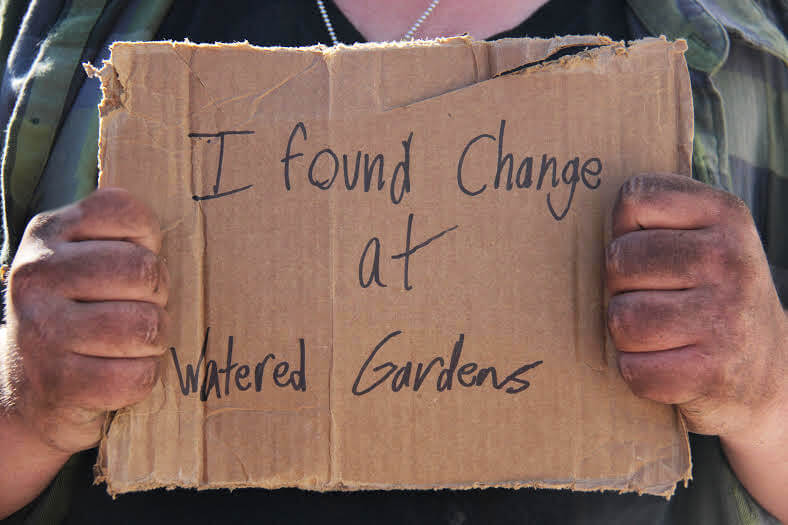 I found Change
at
Watered Gardens